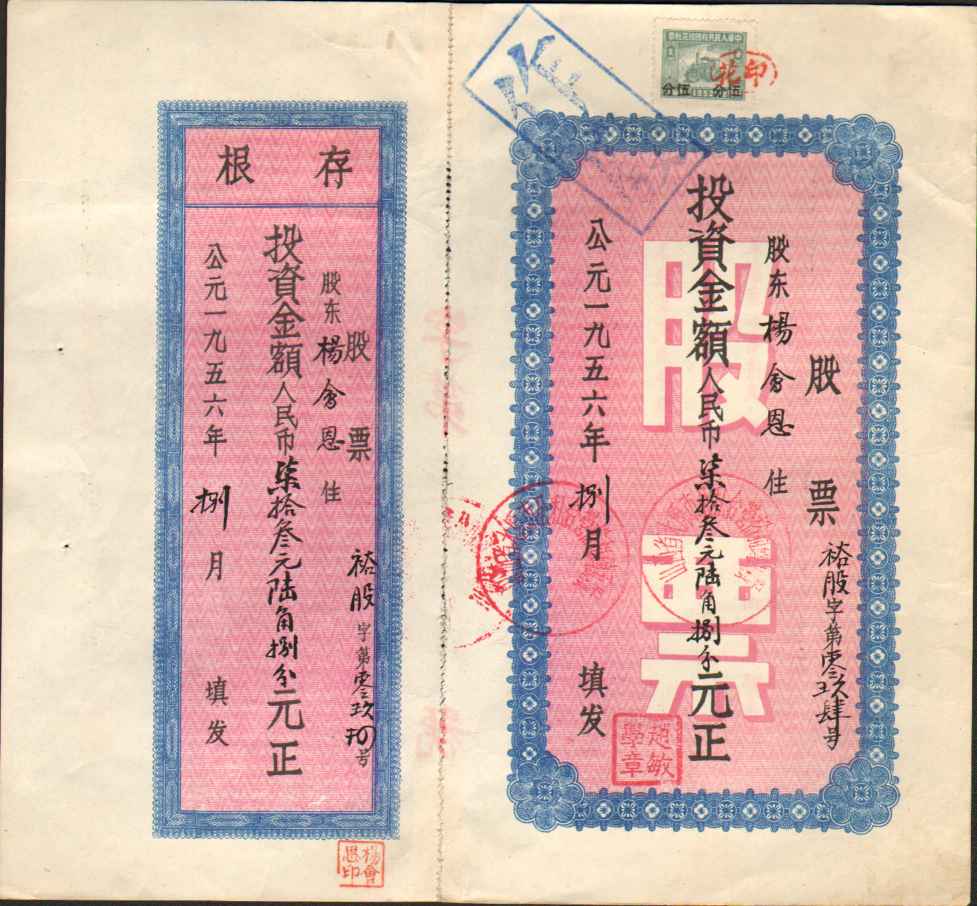 中華人民共和國印花稅票
伍分 伍分
1952
印花
股票
裕股字第零玖肆号
股东楊會恩住
投資金額人民币柒拾叁元陆角捌分元正
股票
公元一九五六年捌月填发
趙敏學章
存根
股票
裕股字第零玖肆号
股东楊會恩住
投資金額人民币柒拾叁元陆角捌分元正
公元一九五六年捌月填发
楊會恩印